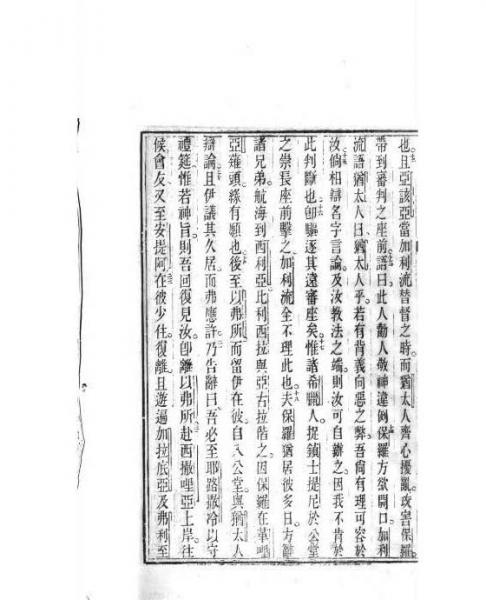 也且亞該亞當加利流督督之時而猶太人齊心擾亂攻害保羅
帶到審判之座前語曰此人勸人敬神違例保羅方欲開口加利
流語猶太人曰猶太人乎若有背義向惡之弊吾尚有理可容於
汝倘相辯名字言論及汝教法之端則汝可自辦之因我不肯於
此判斷也卽驅逐其遠審座矣惟諸希臘人捉鎖士提尼於公堂
之崇長座前擊之加利流全不理此也夫保羅猶居彼多日方辭
諸兄弟航海到西利亞比利西拉與亞古拉偕之因保羅在革
亞薙頭緣有願也後至以弗所而留伊在彼自入公堂與猶太人
辯論且伊議其久居而弗應許乃告辭曰吾必至耶路撒冷以守
禮筵惟若神旨則吾回復見汝卽離以弗所赴西撒哩亞上岸往
候會友又至安提阿在彼少住復離且遊遍加拉底亞及弗利至